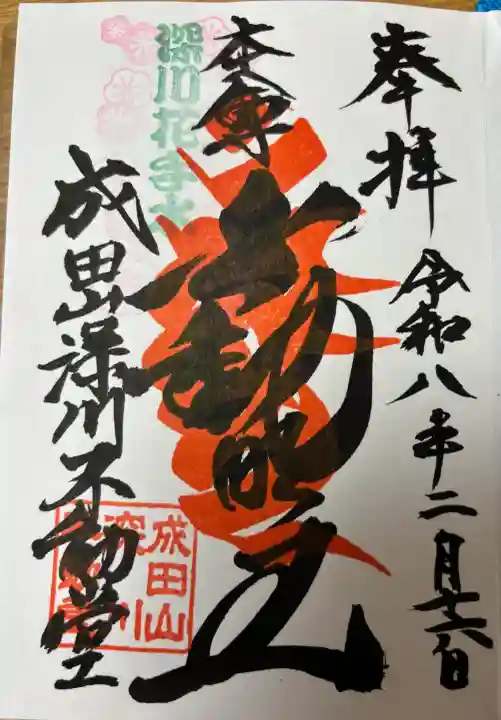 奉拝 令和八年二月十六日
本尊
不動明王
深川花手水
成田山深川不動堂
成田山
深川